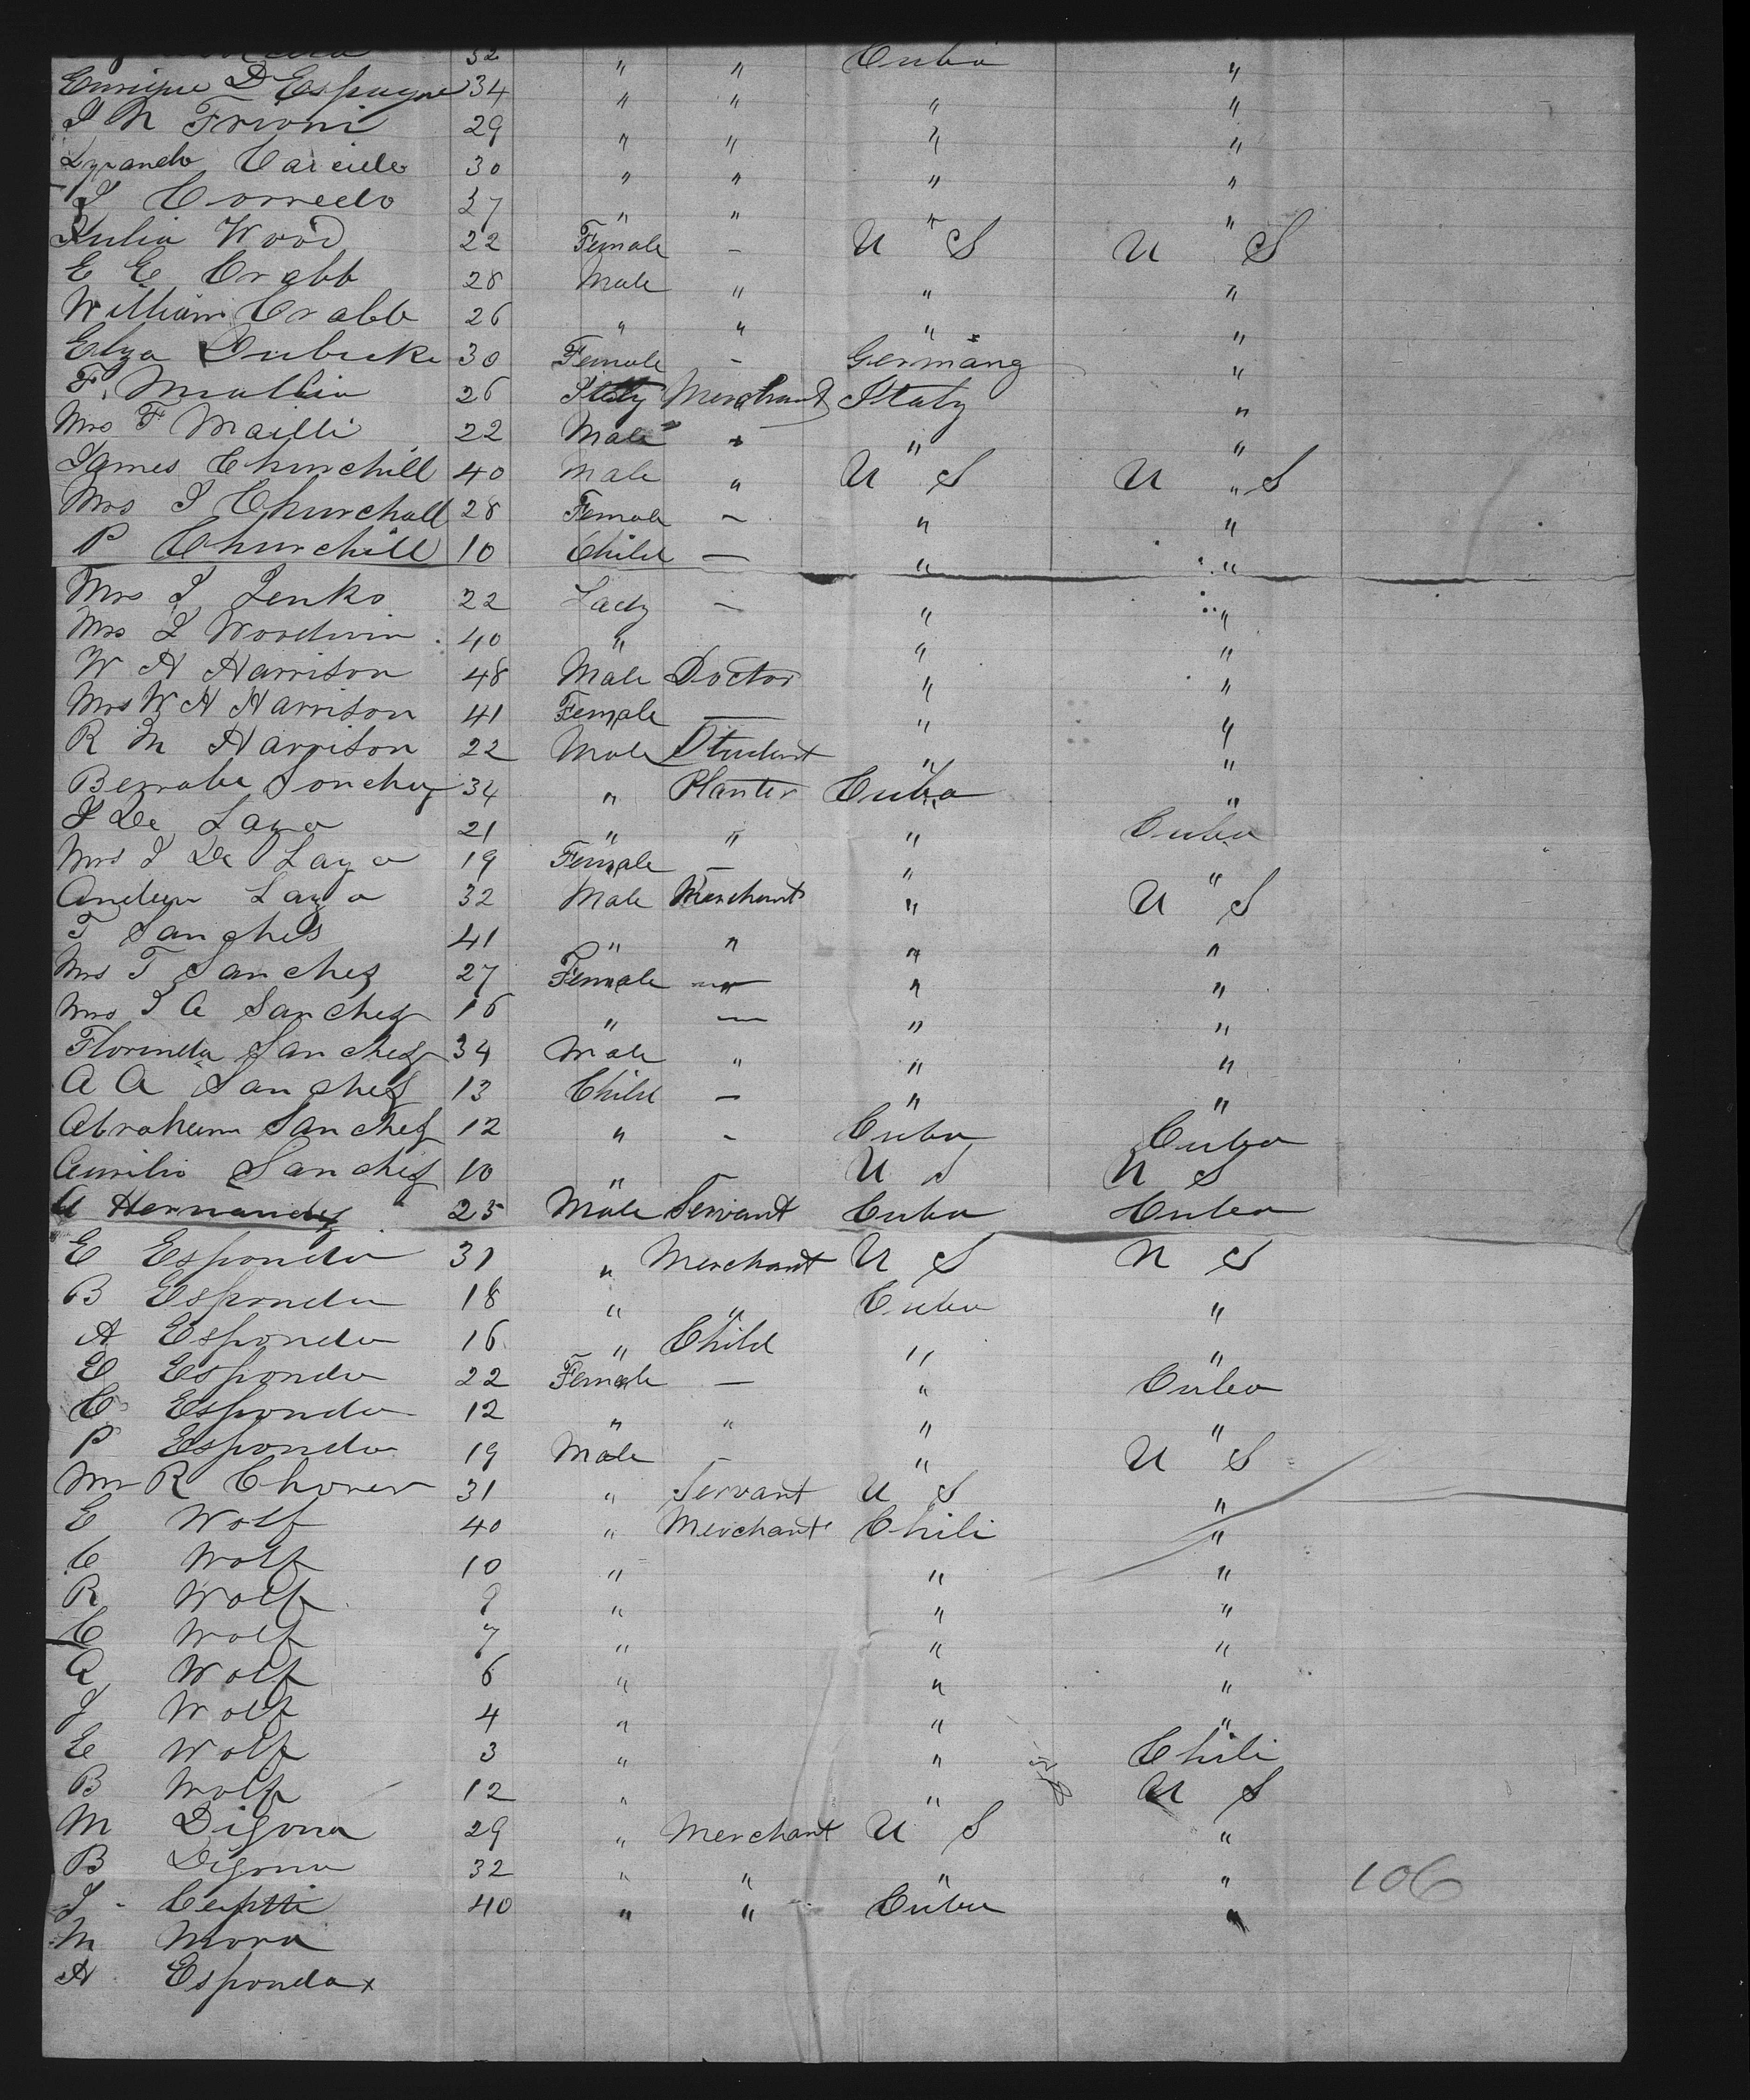 32 " " Cuba "
Enrique D Espagne 34 " " " "
J M Frioni 29 " " " "
30 " " " "
J Corredo 37 " " " "
Julia Wood 22 Female - U " S U " S
E E Crabb 28 Male " " "
William Crabb 26 " " " "
Elza Dubicke 30 Female - Germany "
F. Mallia 26 Italy Merchant Italy "
Mrs F Mailli 22 Male " " "
James Churchill 40 Male " U " S U " S
Mrs J Churchall 28 Female - " "
P Churchill 10 Child - " "
Mrs J Jenks 22 Lady - " "
Mrs L Woodwin 40 " " "
W H Harrison 48 Male Doctor " "
Mrs W H Harrison 41 Female - " "
R M Harrison 22 Male Student " "
Bernabe Sonchez 34 " Planter Cuba "
J De Lazo 21 " " " Cuba
Mrs J De Lazo 19 Female - " "
Lazo 32 Male Merchant " U S
T Sanches 41 " " " "
Mrs T Sanchez 27 Female - " "
Mrs J A Sanchez 16 " - " "
Florinda Sanchez 34 Male " " "
A A Sanchez 13 Child - " "
Abraham Sanchez 12 " - Cuba Cuba
Aurilio Sanchez 10 " - U S U S
A Hernandez 25 Male Servant Cuba Cuba
E Esponda 31 " Merchant U S U S
B Esponda 18 " " Cuba "
A Esponda 16 " Child " "
E Esponda 22 Female - " Cuba
C Esponda 12 " " " "
P Esponda 19 Male - " U S
Mr R 31 " Servant U S "
E Wolf 40 " Merchant Chili "
C Wolf 10 " " "
R Wolf 9 " " "
C Wolf 7 " " "
A Wolf 6 " " "
J Wolf 4 " " "
E Wolf 3 " " Chili
B Wolf 12 " " U S
M Digona 29 " Merchant U S "
B Digona 32 " " " "
J 40 " " Cuba "
M Mora
A Esponda x
106